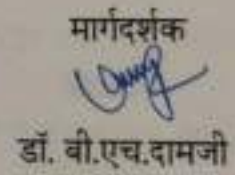 मार्गदर्शक
डॉ. बी.एच.दामजी